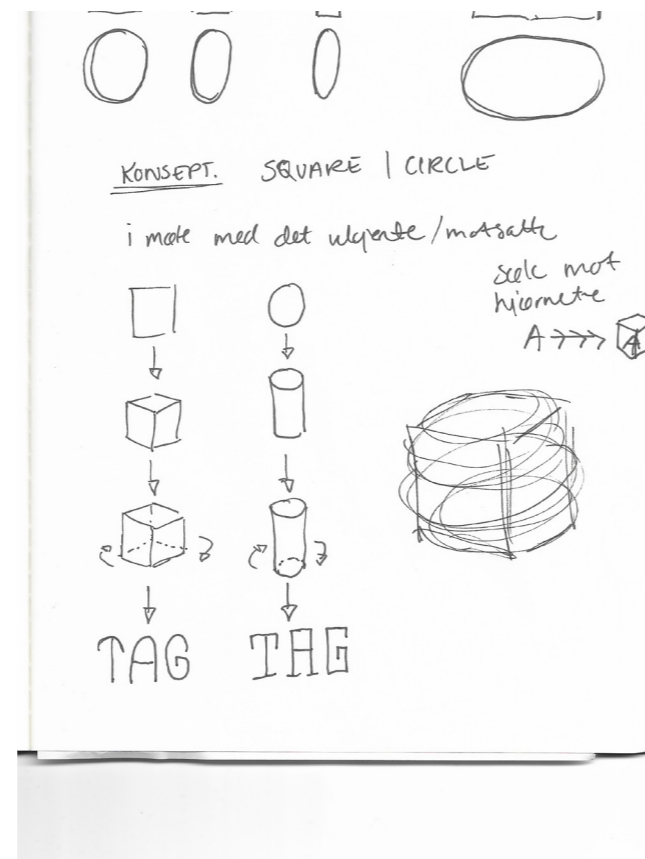 KONSEPT. SQUARE | CIRCLE
i møte med det ukjente/motsatte
mot
hjørnene
A
A
TAG TAG